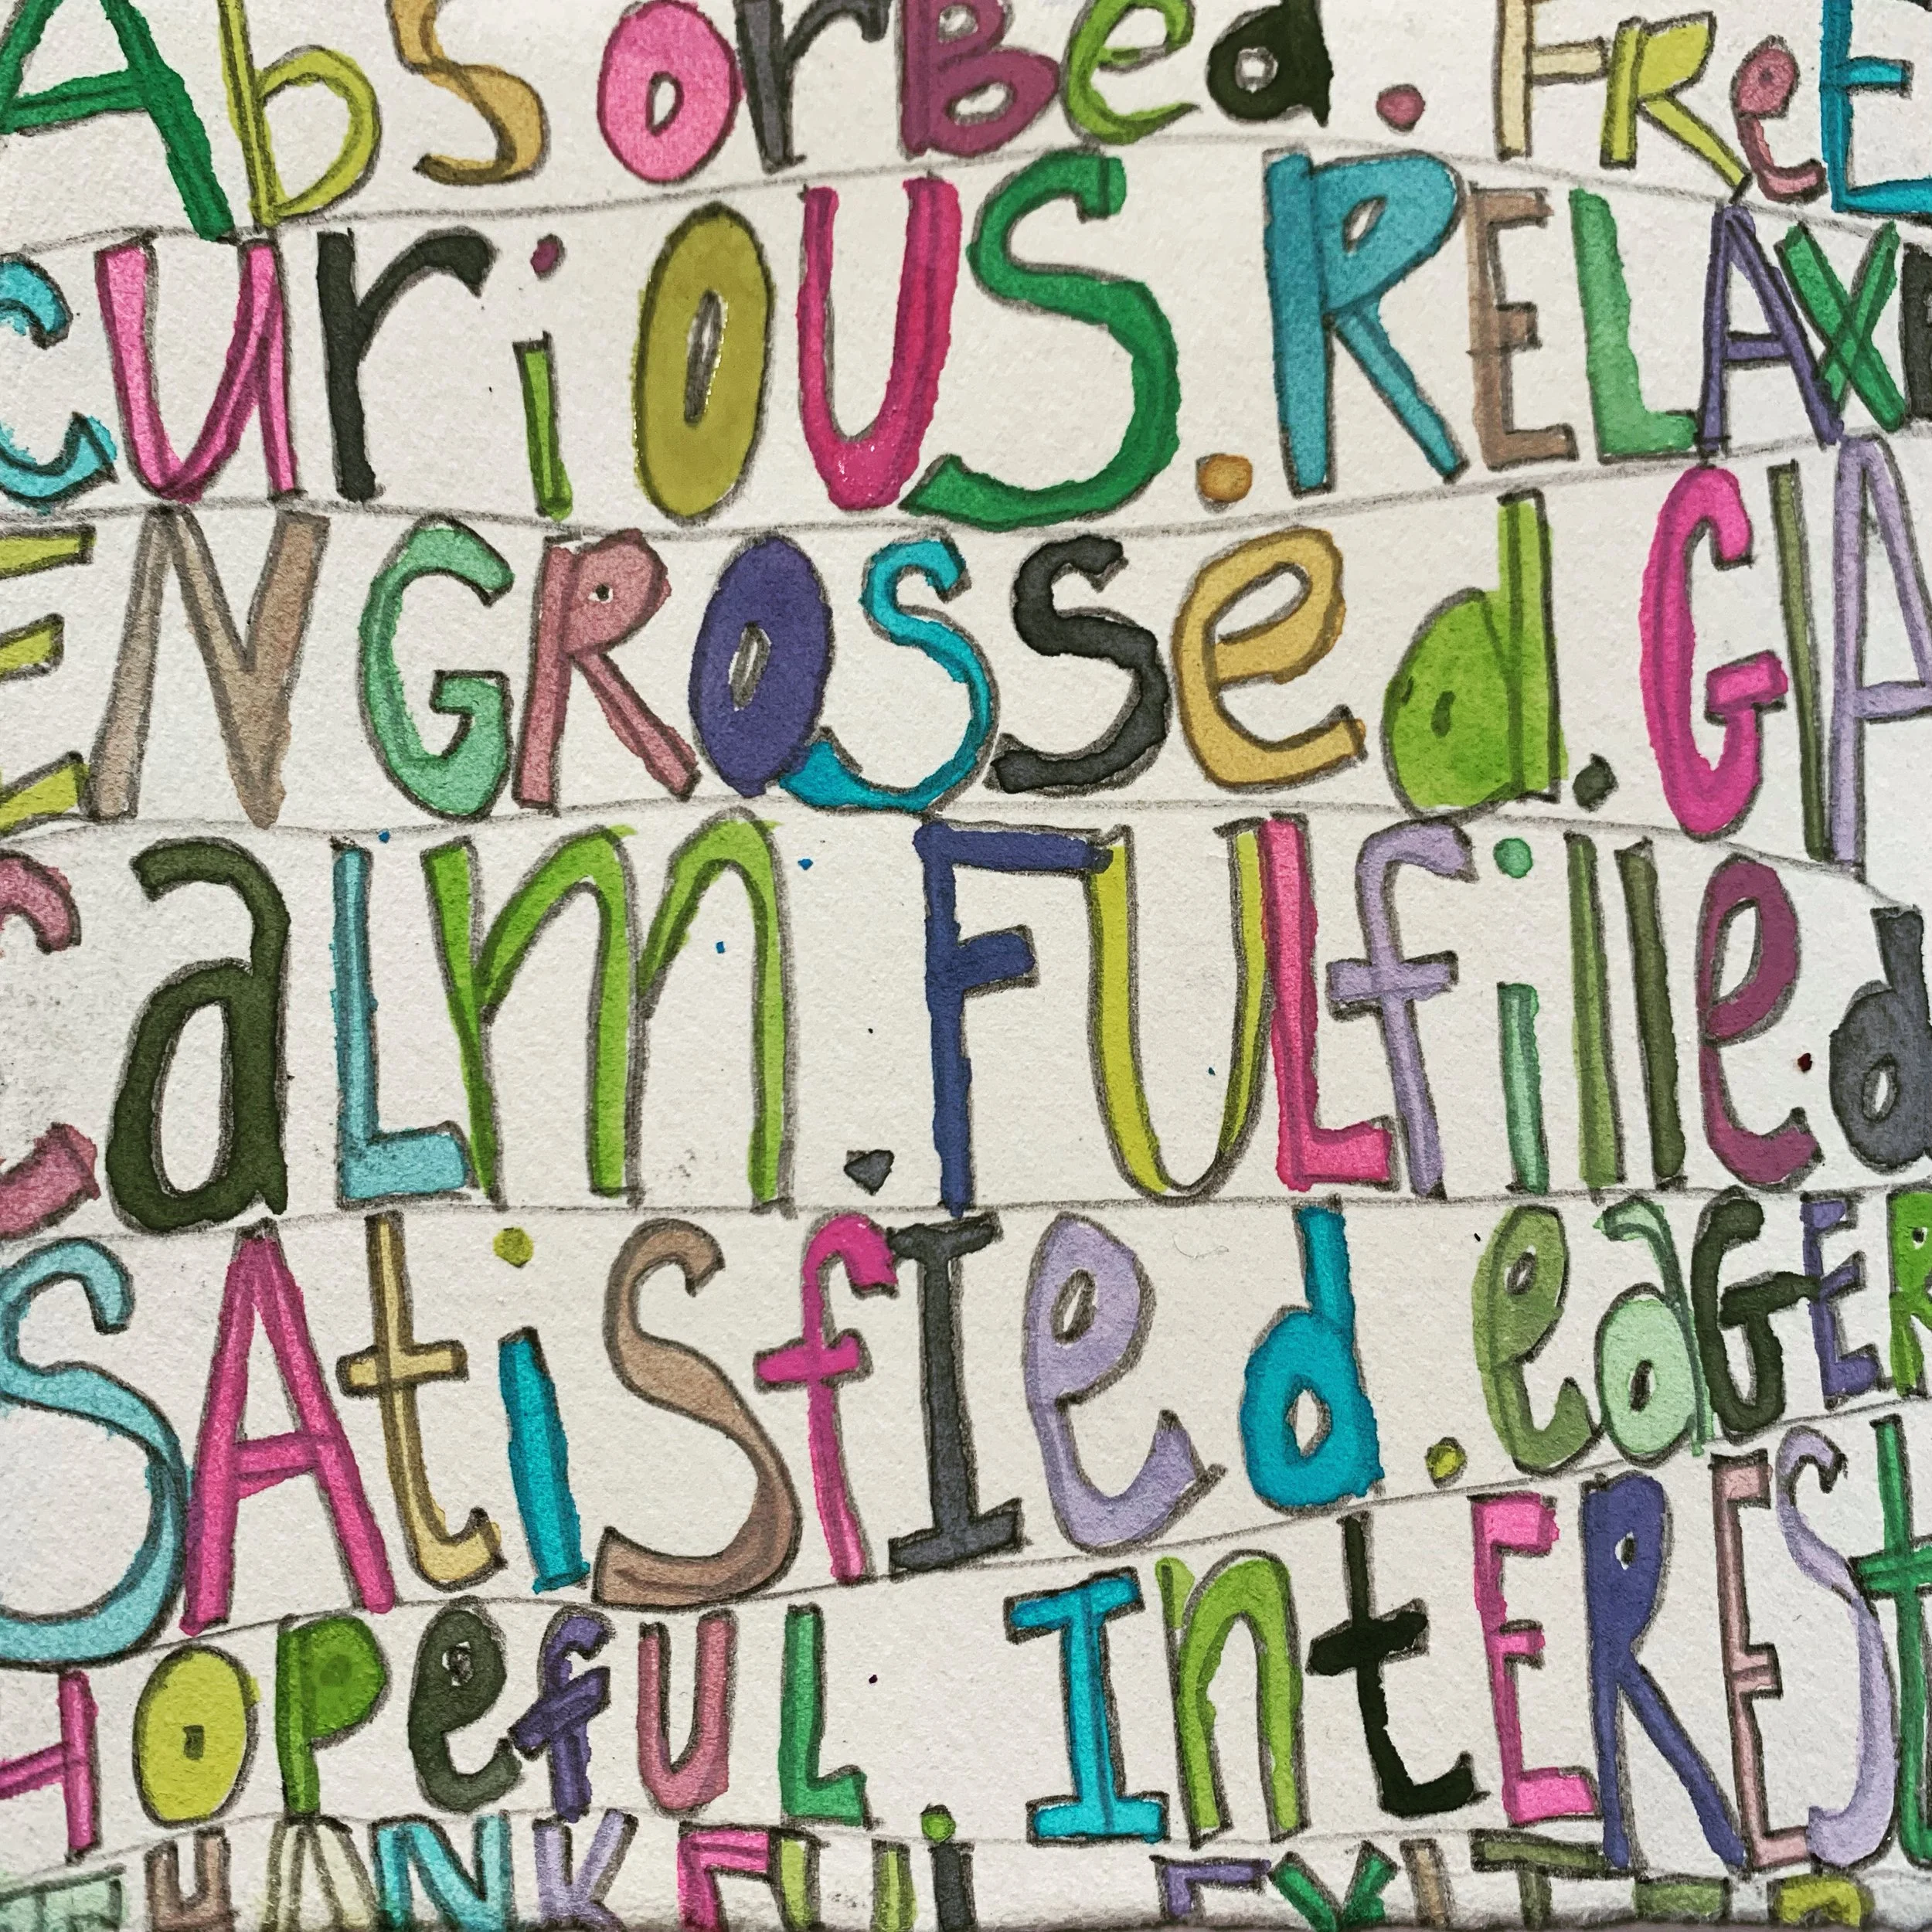 AbSorBed. FReE
curiOUS. RELAX
ENGROSSed. GlA
caLm. FULfilled
SAtiSfIed. eaGER
HOPefUL IntEREST
THANKFUL